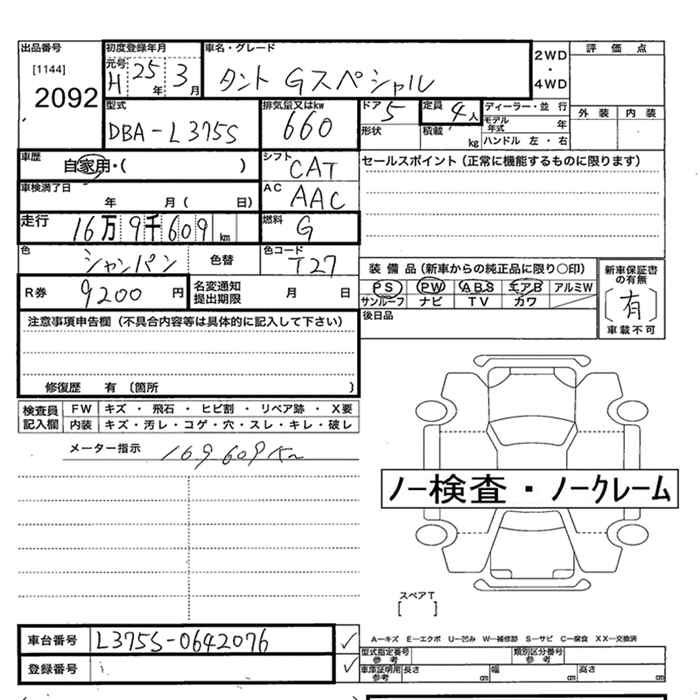 出品番号
[1144]
2092
初度登録年月
元号
H 25年 3月
車名・グレード
タント Gスペシャル
2WD
・
4WD
評価点
外装 内装
型式
DBA-L375S
排気量又はkw
660
ドア 5
形状
定員 4人
積載 kg
ディーラー・並 行
モデル年式 年
ハンドル 左・右
車歴
自家用・( )
シフト
CAT
セールスポイント(正常に機能するものに限ります)
車検満了日
年 月( 日)
AC
AAC
走行
16万 9千 609 km
燃料
G
色
シャンパン
色替
色コード
T27
装備品(新車からの純正品に限り○印)
PS PW ABS エアB アルミW
サンルーフ ナビ TV カワ
新車保証書の有無
[有]
車載不可
R券
9200円
名変通知
提出期限
月 日
後日品
注意事項申告欄(不具合内容等は具体的に記入して下さい)
修復歴 有(箇所 )
検査員
記入欄
FW キズ・飛石・ヒビ割・リペア跡・X要
内装 キズ・汚レ・コゲ・穴・スレ・キレ・破レ
メーター指示
169609Km
ノー検査・ノークレーム
スペアT
[ ]
車台番号
L375S-0642076
登録番号
A-キズ E-エクボ U-凹み W-補修跡 S-サビ C-腐食 XX-交換済
型式指定番号
参考
類別区分番号
参考
車庫証明用
参考
長さ cm 幅 cm 高さ cm